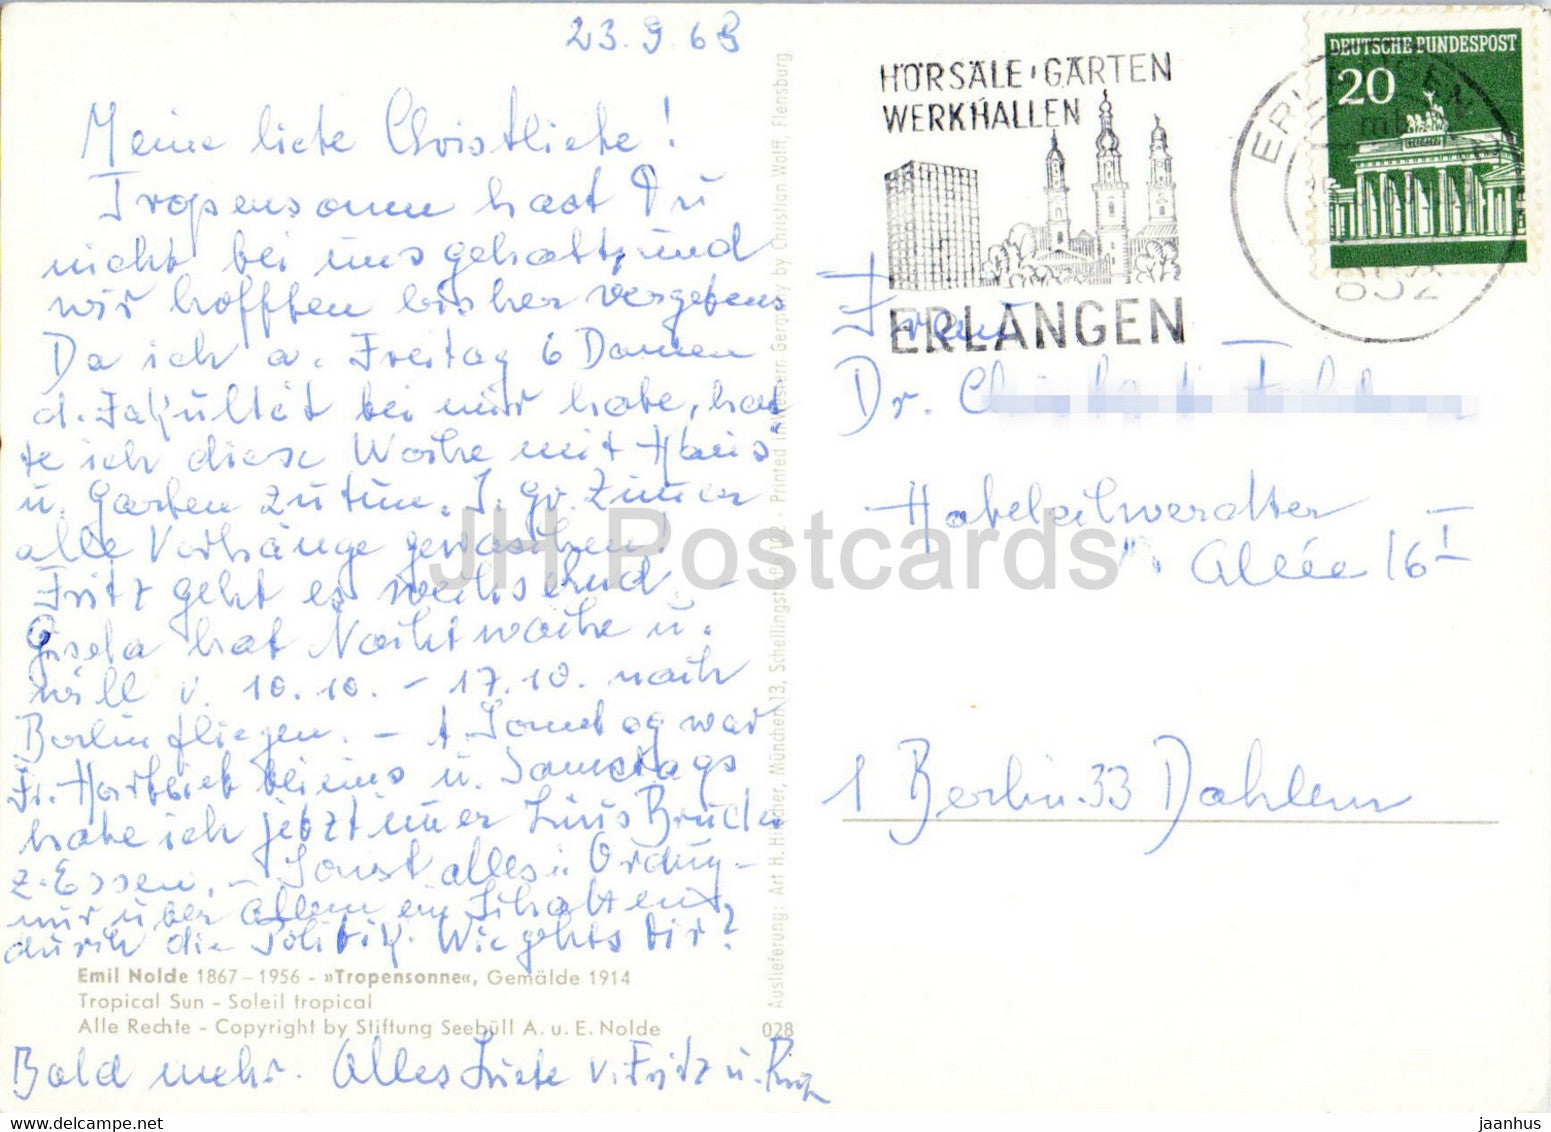 23.9.68
Meine liebe Christliebe!
Tropensonne hast Du
nicht bei uns gehabt, und
wir hofften bisher vergebens
Da ich a. Freitag 6 Damen
d. Fakultät bei mir habe, hat
te ich diese Woche mit Haus
u. Garten zu tun. I. gr. Zimmer
alle Vorhänge gewaschen!
Fritz geht es wechselnd. -
Gisela hat Nachtwache u.
will v. 10.10. - 17.10. nach
Berlin fliegen. -
war
Fr. bei uns u. Samstags
habe ich jetzt immer Bruder
z. Essen. - Sonst alles i. Ordnung -
nur über allem ein Schatten
durch die Politik. Wie gehts Dir?
Emil Nolde 1867–1956 - »Tropensonne«, Gemälde 1914
Tropical Sun - Soleil tropical
Alle Rechte - Copyright by Stiftung Seebüll A. u. E. Nolde
028
Bald mehr. Alles Liebe v. Fritz u.
Auslieferung: Art H. Hilscher, München 13, Schellingstraße - Printed in Western Germany by Christian Wolff, Flensburg
HÖRSÄLE · GÄRTEN
WERKHALLEN
ERLANGEN
ERLANGEN
852
DEUTSCHE BUNDESPOST
20
Frau
Dr.
Habelschwerdter
Allée 16 I
1 Berlin 33 Dahlem
JH Postcards
jaanhus